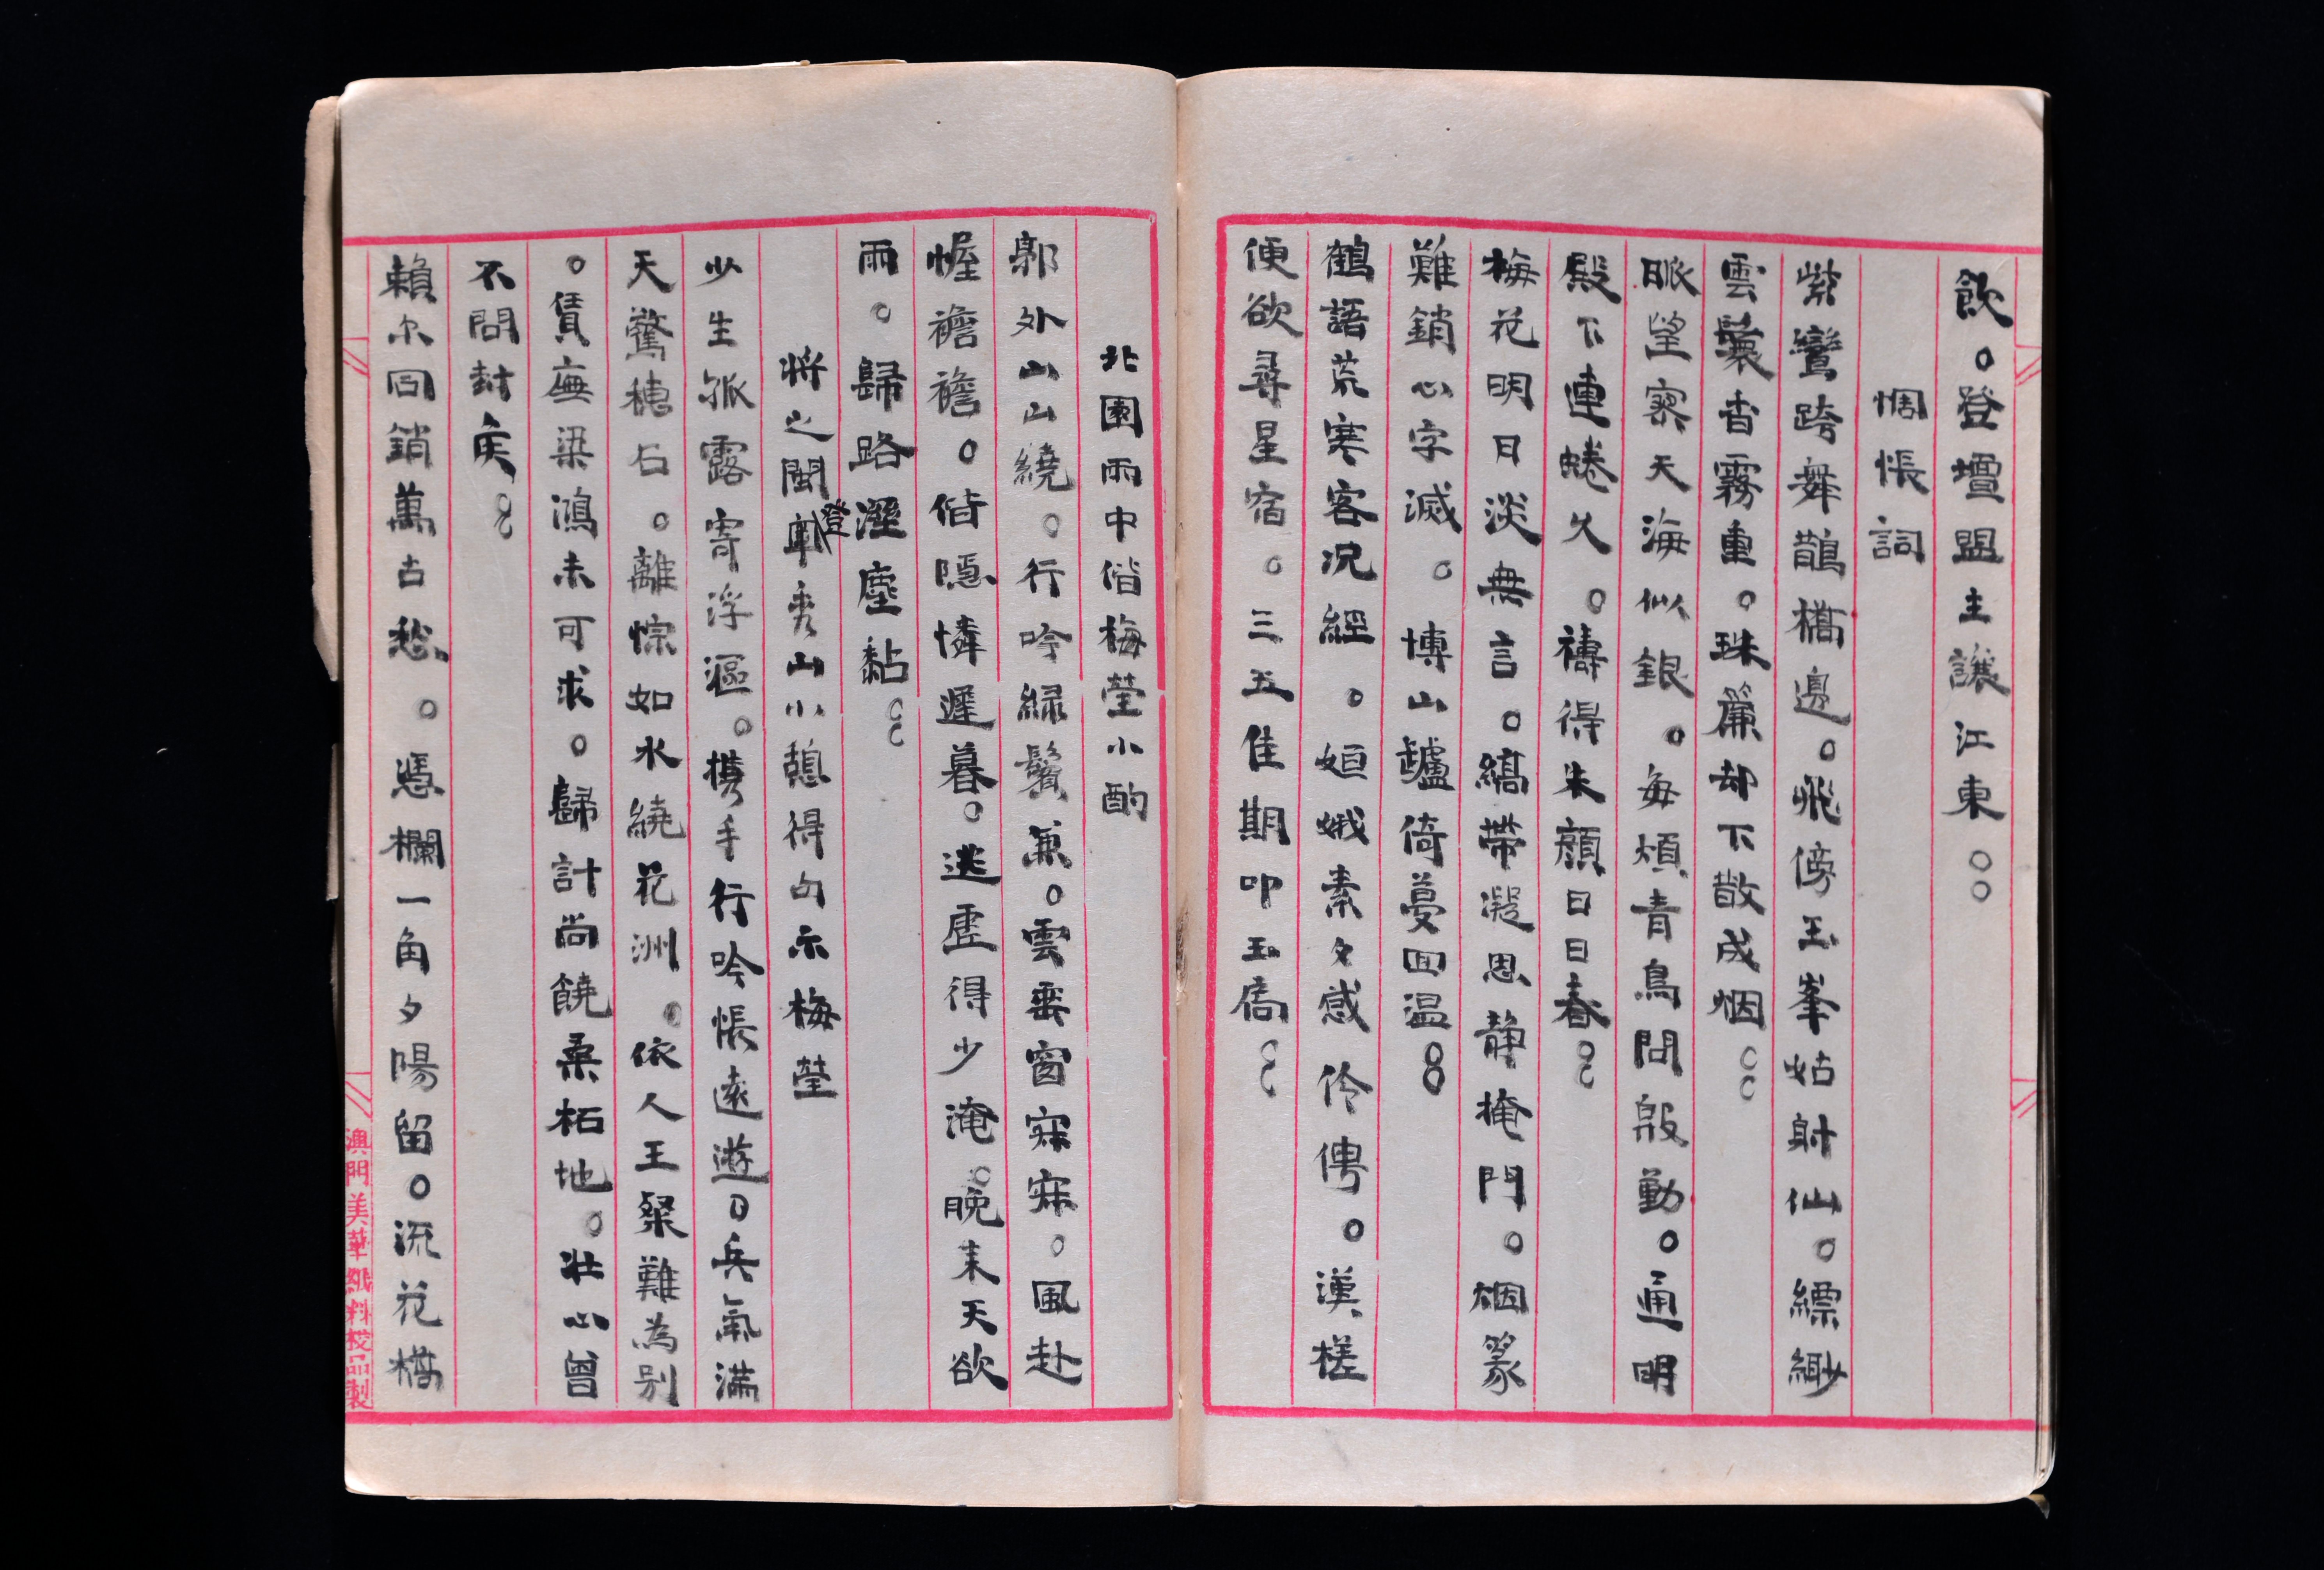 飲。登壇盟主讓江東。。
惆悵詞
紫鸞跨舞鵲橋邊。飛傍玉峯姑射仙。縹緲
雲鬟香霧重。珠簾却下散成烟。。
眽望寥天海似銀。每煩青鳥問殷勤。通明
殿下連蜷久。禱得朱顏日日春。。
梅花明日淡無言。縞帶凝思靜掩門。烟篆
難銷心字滅。博山罏倚蔓回温。。
鶴語荒寒客況經。姮娥素夕感伶俜。漢槎
便欲尋星宿。三五佳期叩玉扃。。
北園雨中偕梅塋小酌
郭外山山繞。行吟綠鬢兼。雲垂窗寂寂。風赴
幄襜襜。偕隱憐遲暮。逃虛得少淹。晚来天欲
雨。歸路溼塵黏。。
將之閩登秀山小憩得句示梅塋
少生孤露寄浮漚。攜手行吟悵遠遊。兵氣滿
天驚穗石。離悰如水繞花洲。依人王粲難為別
。賃廡梁鴻未可求。歸計尚饒桑柘地。壯心曾
不問封侯。。
賴尔同銷萬古愁。憑欄一角夕陽留。流花橋
澳門美華紙料校品製